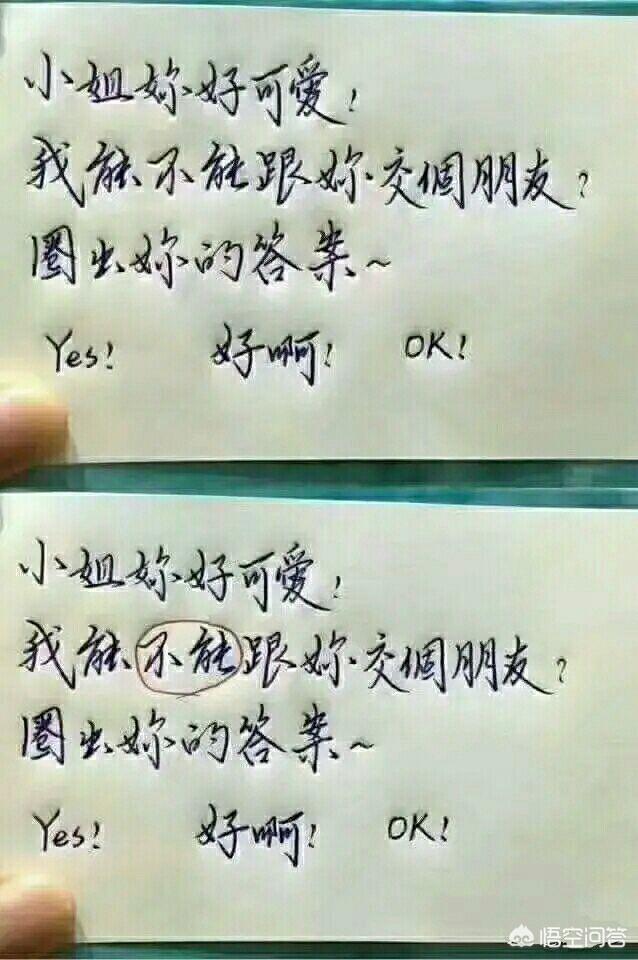 小姐妳好可愛！
我能不能跟妳交個朋友？
圈出妳的答案~
Yes! 好啊! OK!
小姐妳好可愛！
我能不能跟妳交個朋友？
圈出妳的答案~
Yes! 好啊! OK!
悟空问答